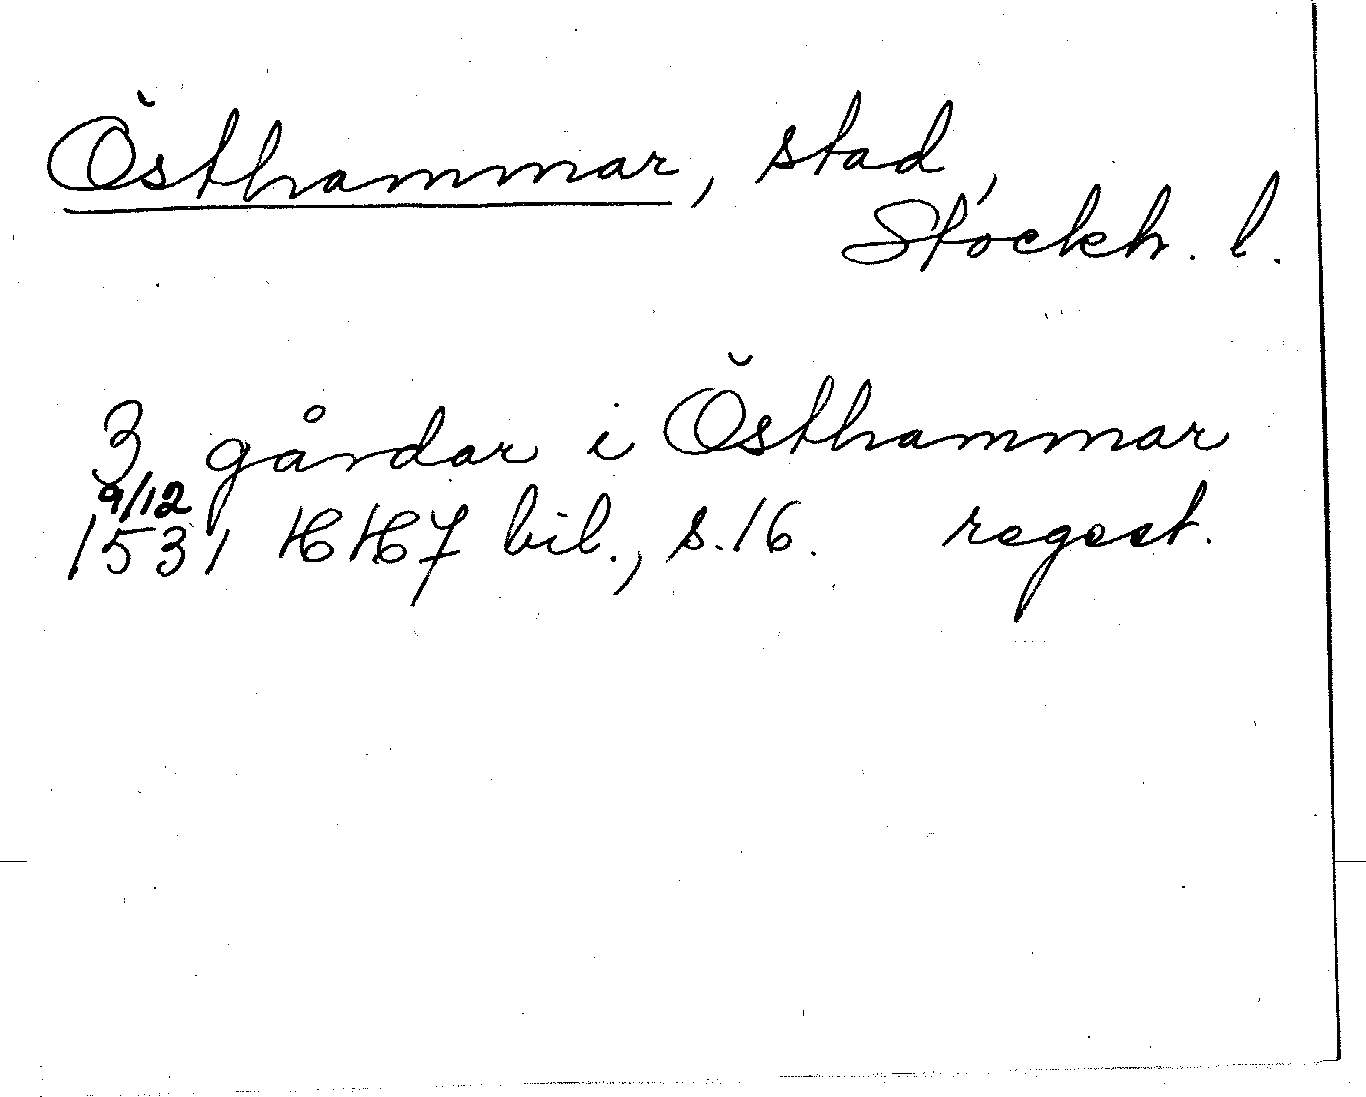 Östhammar, stad,
Stockh. l.
3 gårdar i Östhammar
9/12
1531 HH 7 bil., s. 16. regest.